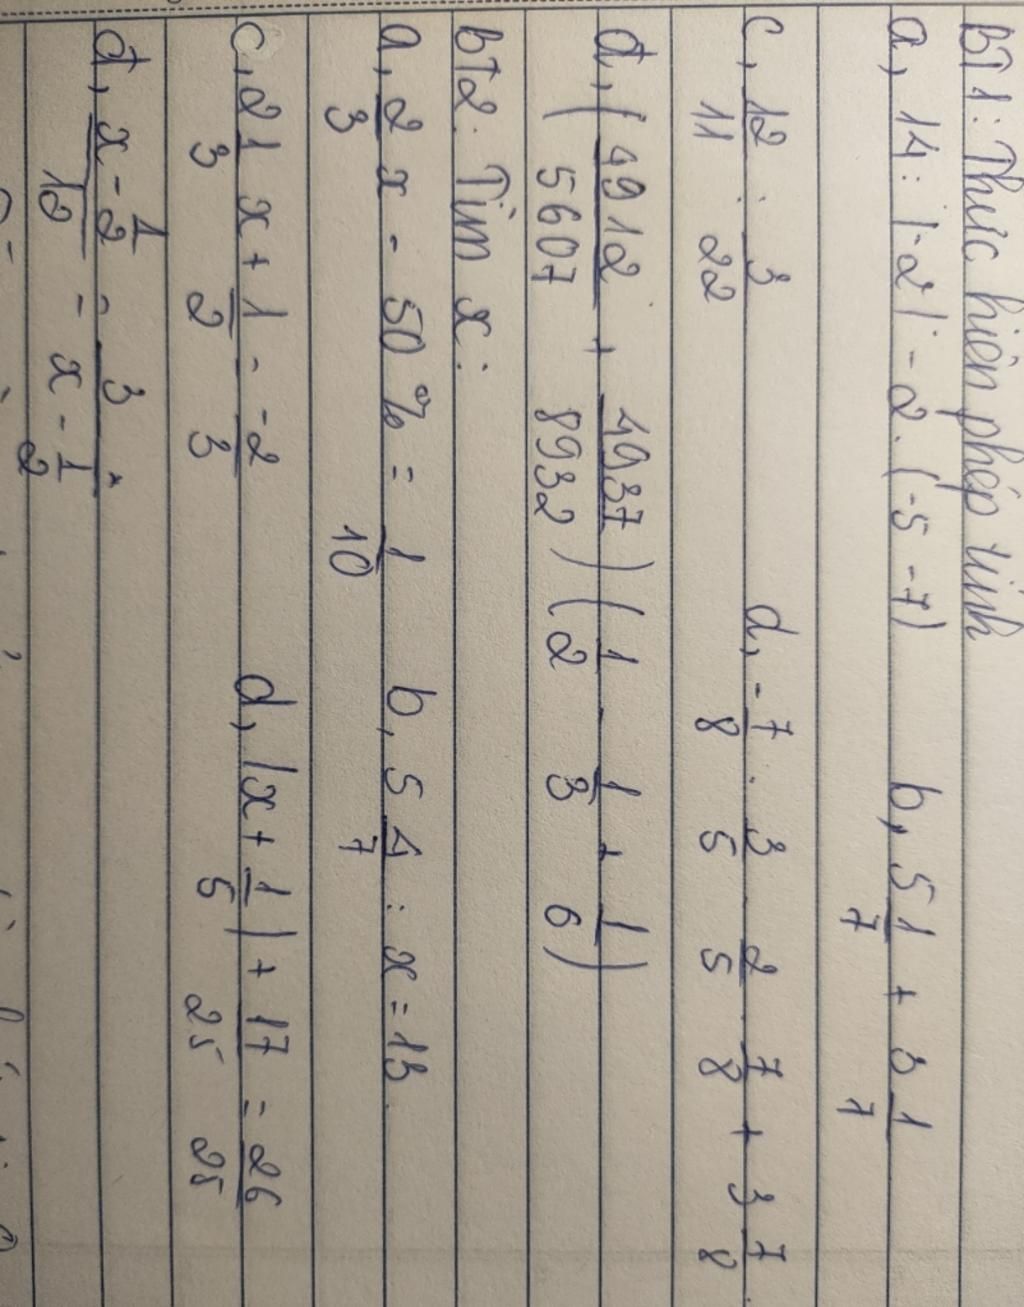 BT1: Thực hiện phép tính
a, 14: |-2| - 2. (-5 -7) b, 5 1/7 + 3 1/7
c, 12/11 : 3/22 d, -7/8 . 3/5 - 2/5 . 7/8 + 3 7/8
đ, (4912/5607 + 4937/8932) (1/2 - 1/3 + 1/6)
BT2: Tìm x:
a, 2/3 x - 50 % = 1/10 b, 5 4/7 : x = 13
c, 2 1/3 x + 1/2 = -2/3 d, |x + 1/5| + 17/25 = 26/25
đ, (x - 1/2)/12 = 3/(x - 1/2)